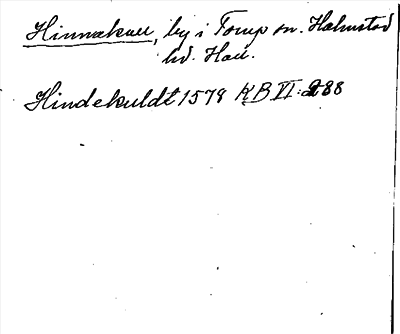 Hinnakull, by i Torup sn. Halmstad
hd. Hall.
Hindekuldt 1578 KB VI: 288